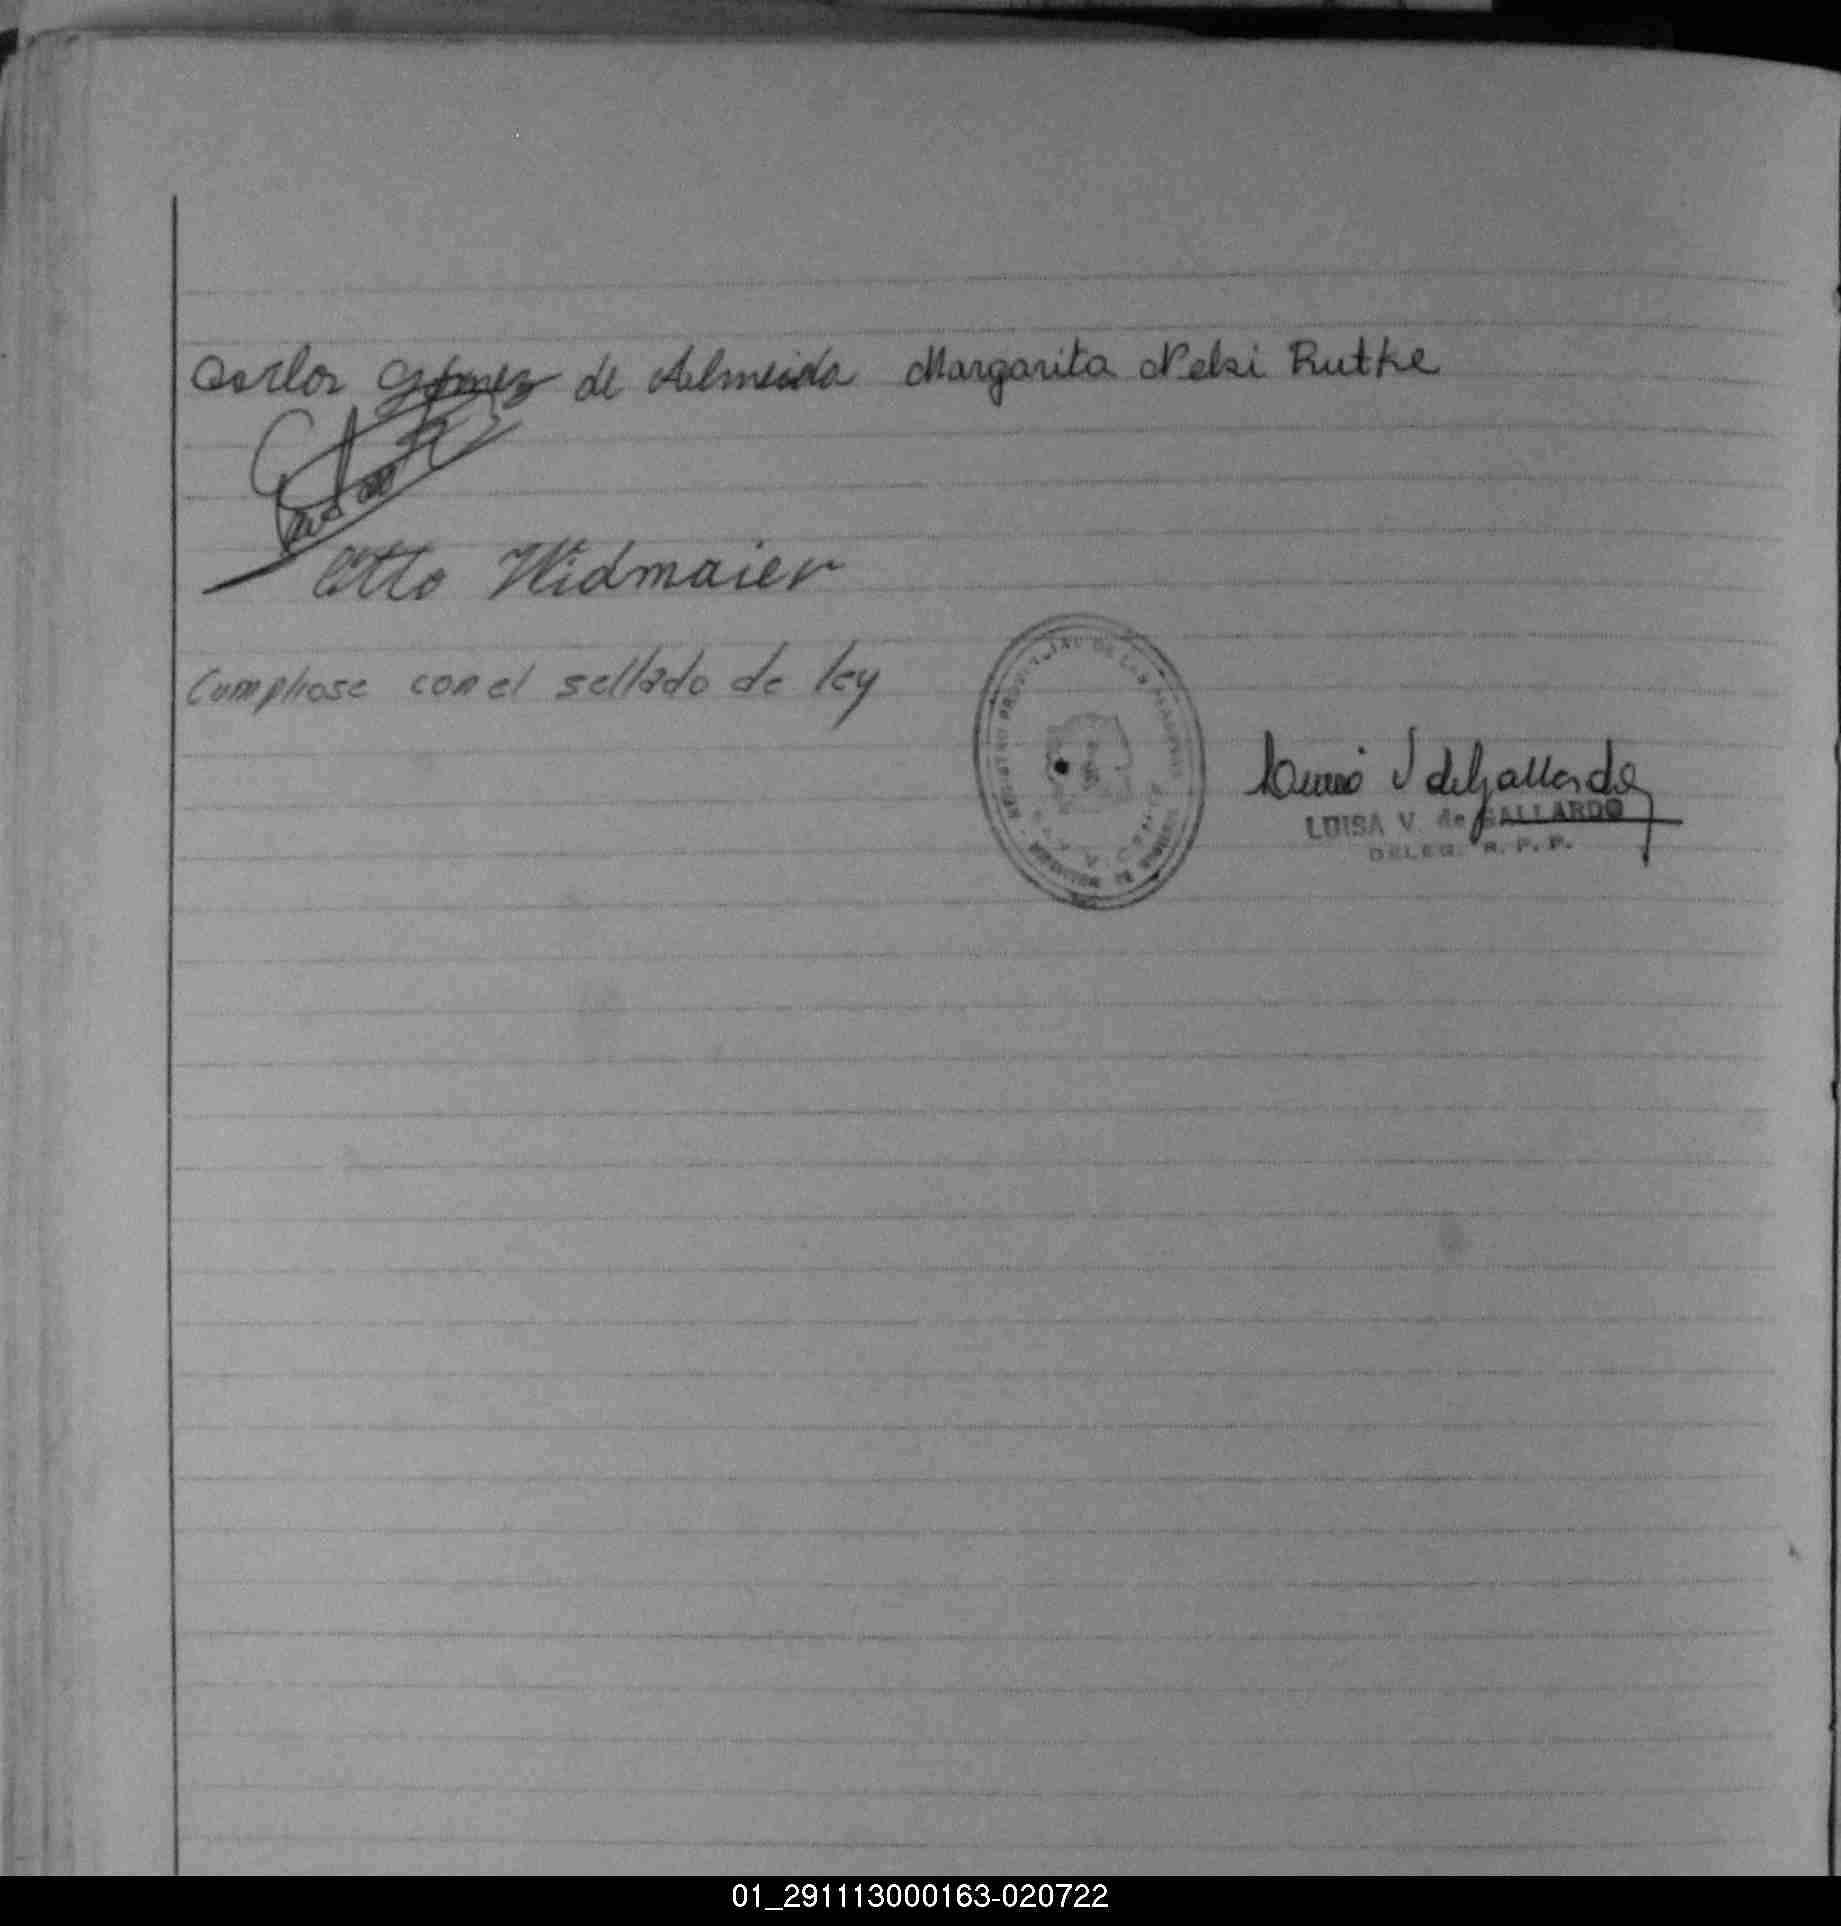 Carlos Gómez de Almeida Margarita Neki Rutke
Otto Widmaier
Cumpliose con el sellado de ley
REGISTRO PROVINCIAL DE LAS PERSONAS
Luisa V de Gallardo
LUISA V. de GALLARDO
DELEG. R. P. P.
01_291113000163-020722